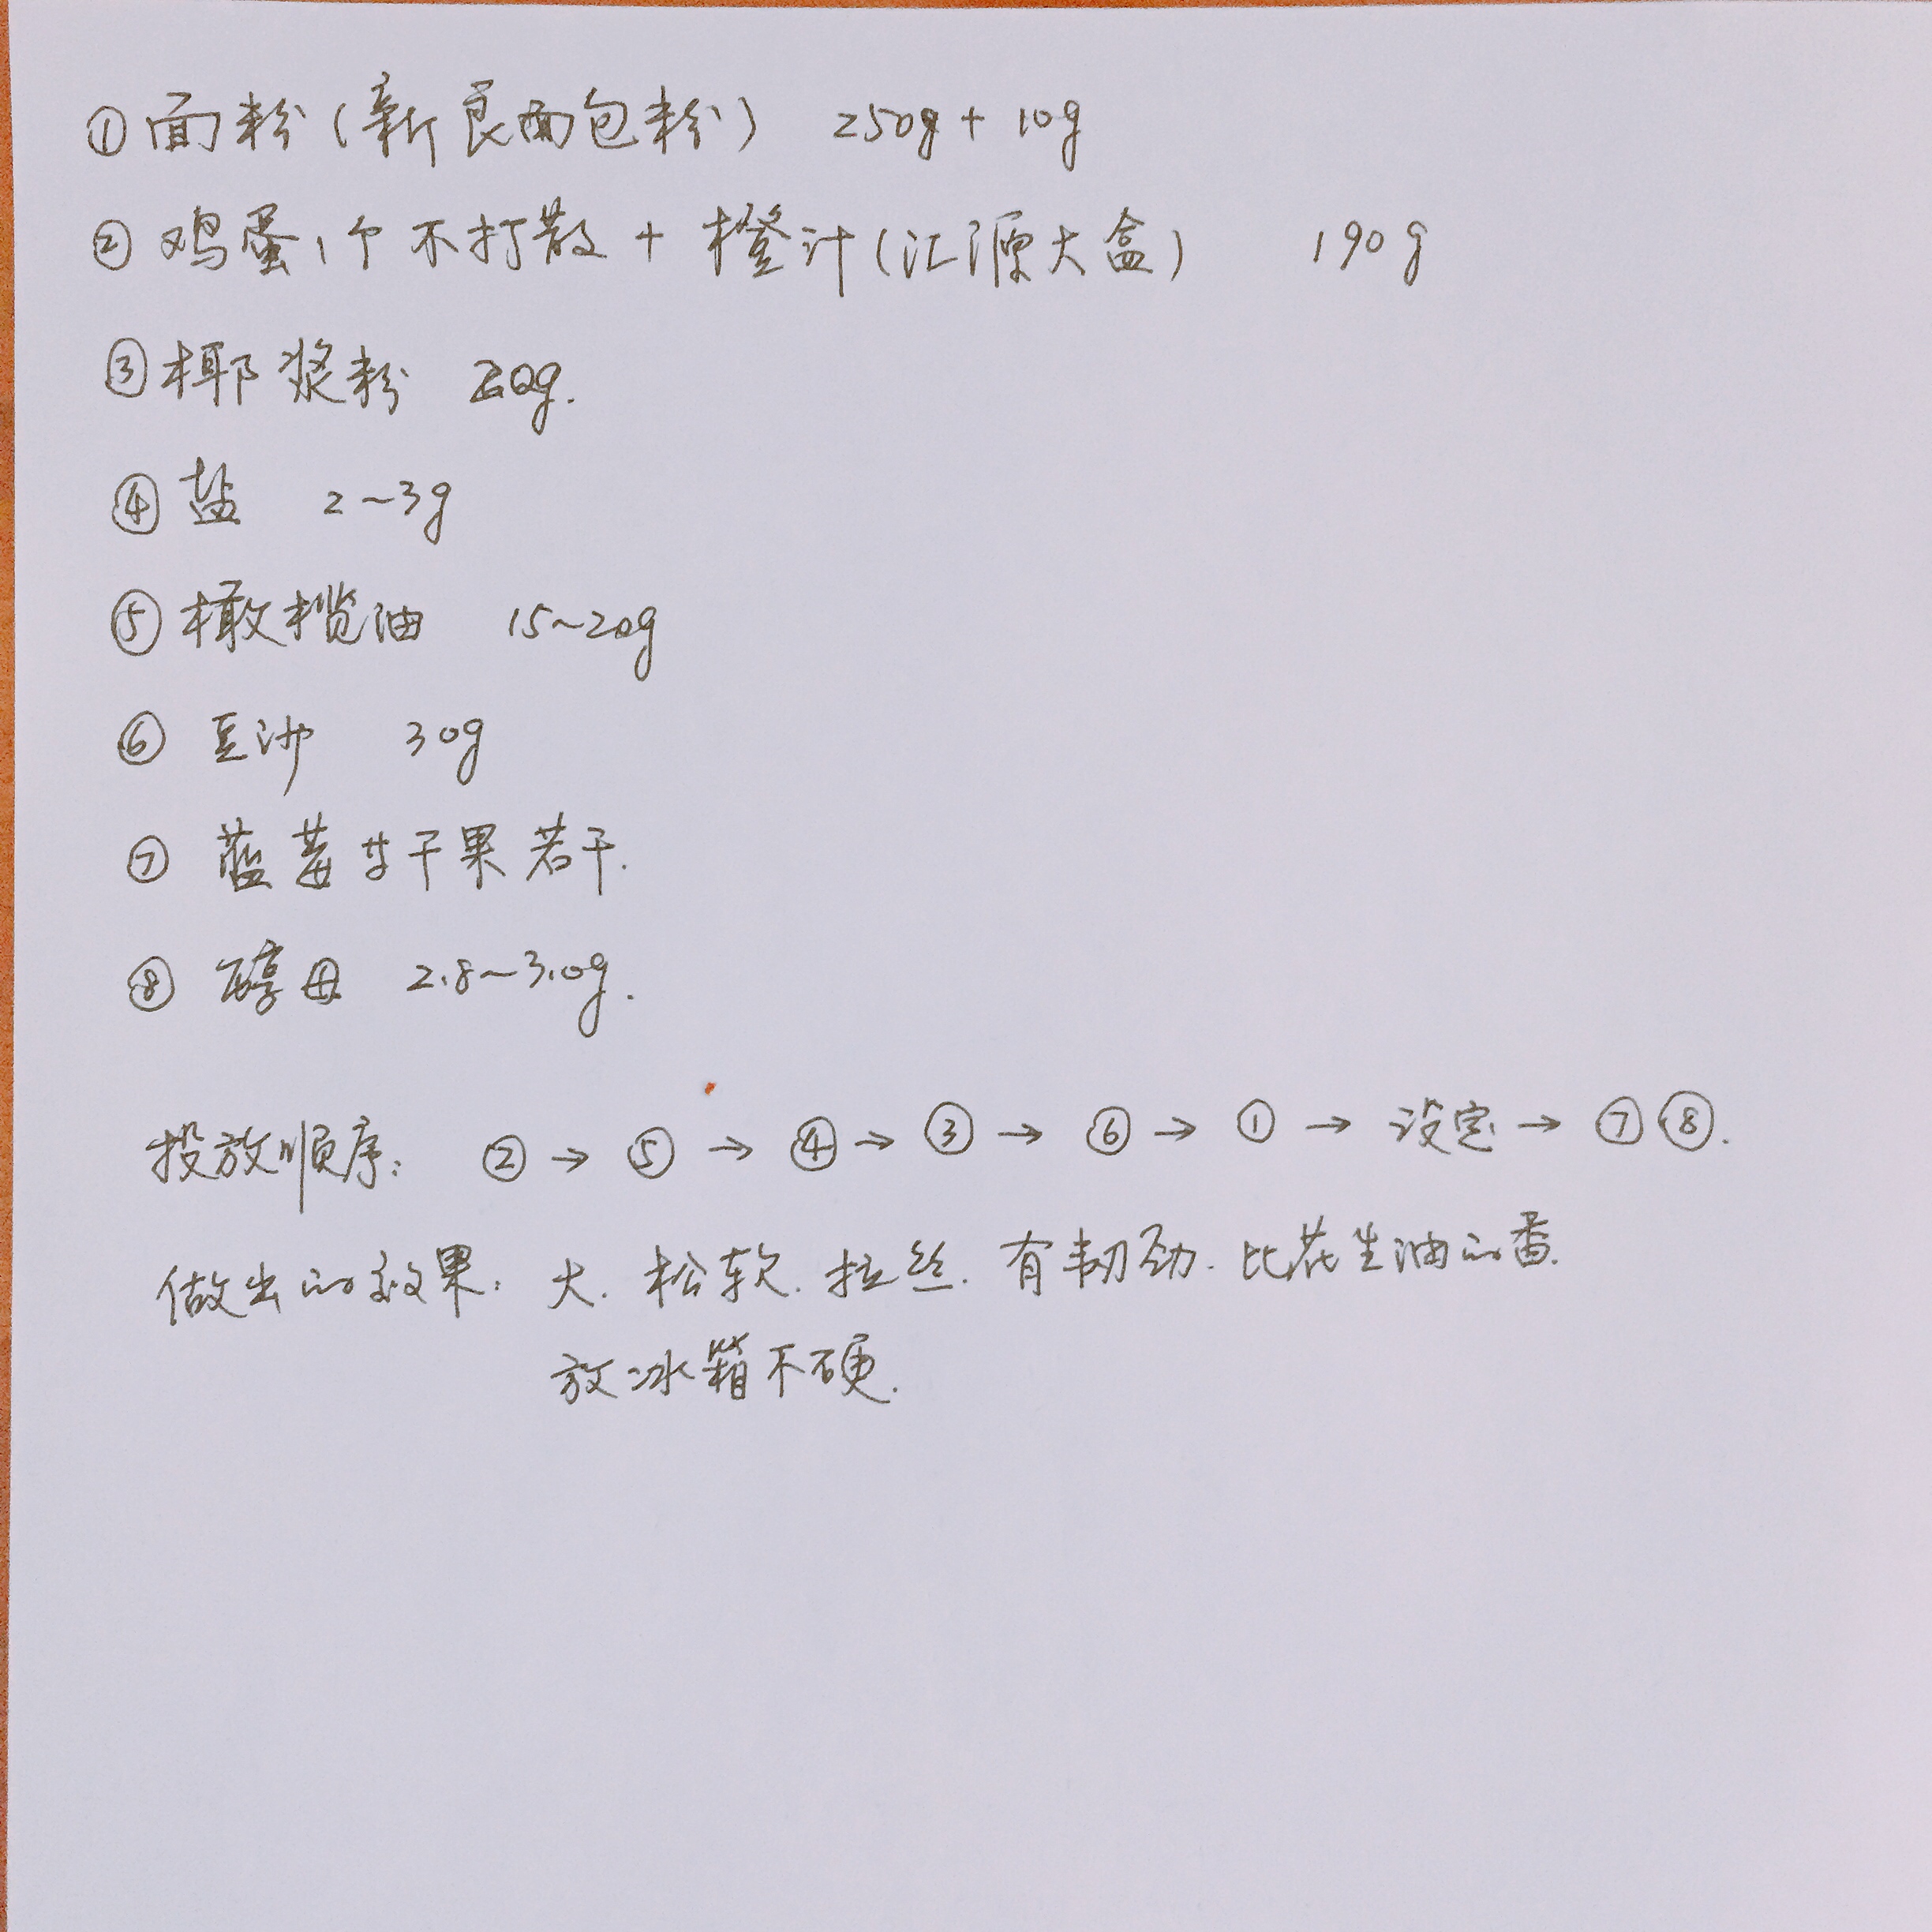 ①面粉(新良面包粉) 250g + 10g
②鸡蛋1个不打散 + 橙汁(汇源大盒) 190g
③椰浆粉 20g.
④盐 2~3g
⑤橄榄油 15~20g
⑥豆沙 30g
⑦蓝莓廿干果若干.
⑧酵母 2.8~3.0g.
投放顺序: ②→⑤→④→③→⑥→①→设定→⑦⑧.
做出的效果: 大.松软.拉丝.有韧劲.比花生油的香.
放冰箱不硬.